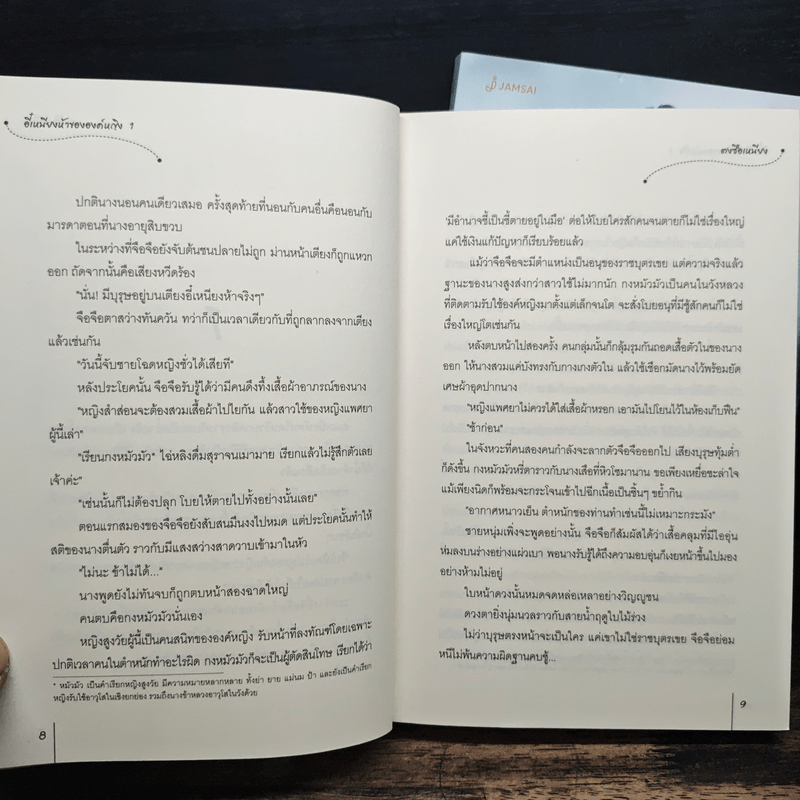 อี๋เหนียงห้าขององค์หญิง 1
ปกตินางนอนคนเดียวเสมอ ครั้งสุดท้ายที่นอนกับคนอื่นคือนอนกับ
มารดาตอนที่นางอายุสิบขวบ
ในระหว่างที่จือจือยังจับต้นชนปลายไม่ถูก ม่านหน้าเตียงก็ถูกแหวก
ออก ถัดจากนั้นคือเสียงหวีดร้อง
"นั่น! มีบุรุษอยู่บนเตียงอี๋เหนียงห้าจริงๆ"
จือจือตาสว่างทันควัน ทว่าก็เป็นเวลาเดียวกับที่ถูกลากลงจากเตียง
แล้วเช่นกัน
"วันนี้จับชายโฉดหญิงชั่วได้เสียที"
หลังประโยคนั้น จือจือรับรู้ได้ว่ามีคนดึงทึ้งเสื้อผ้าอาภรณ์ของนาง
"หญิงสำส่อนจะต้องสวมเสื้อผ้าไปไยกัน แล้วสาวใช้ของหญิงแพศยา
ผู้นี้เล่า"
"เรียนกงหมัวมัว* ไฉ่หลิงดื่มสุราจนเมามาย เรียกแล้วไม่รู้สึกตัวเลย
เจ้าค่ะ"
"เช่นนั้นก็ไม่ต้องปลุก โบยให้ตายไปทั้งอย่างนั้นเลย"
ตอนแรกสมองของจือจือยังสับสนมึนงงไปหมด แต่ประโยคนั้นทำให้
สติของนางตื่นตัว ราวกับมีแสงสว่างสาดวาบเข้ามาในหัว
"ไม่นะ ข้าไม่ได้..."
นางพูดยังไม่ทันจบก็ถูกตบหน้าสองฉาดใหญ่
คนตบคือกงหมัวมัวนั่นเอง
หญิงสูงวัยผู้นี้เป็นคนสนิทขององค์หญิง รับหน้าที่ลงทัณฑ์โดยเฉพาะ
ปกติเวลาคนในตำหนักทำอะไรผิด กงหมัวมัวก็จะเป็นผู้ตัดสินโทษ เรียกได้ว่า
* หมัวมัว เป็นคำเรียกหญิงสูงวัย มีความหมายหลากหลาย ทั้งย่า ยาย แม่นม ป้า และยังเป็นคำเรียก
หญิงรับใช้อาวุโสในเชิงยกย่อง รวมถึงนางข้าหลวงอาวุโสในวังด้วย
8
JAMSAI
ตงซือเหนียง
'มีอำนาจชี้เป็นชี้ตายอยู่ในมือ' ต่อให้โบยใครสักคนจนตายก็ไม่ใช่เรื่องใหญ่
แค่ใช้เงินแก้ปัญหาก็เรียบร้อยแล้ว
แม้ว่าจือจือจะมีตำแหน่งเป็นอนุของราชบุตรเขย แต่ความจริงแล้ว
ฐานะของนางสูงส่งกว่าสาวใช้ไม่มากนัก กงหมัวมัวเป็นคนในวังหลวง
ที่ติดตามรับใช้องค์หญิงมาตั้งแต่เล็กจนโต จะสั่งโบยอนุที่มีชู้สักคนก็ไม่ใช่
เรื่องใหญ่โตเช่นกัน
หลังตบหน้าไปสองครั้ง คนกลุ่มนั้นก็กลุ้มรุมกันถอดเสื้อตัวในของนาง
ออก ให้นางสวมแค่บังทรงกับกางเกงตัวใน แล้วใช้เชือกมัดนางไว้พร้อมยัด
เศษผ้าอุดปากนาง
"หญิงแพศยาไม่ควรได้ใส่เสื้อผ้าหรอก เอามันไปโยนไว้ในห้องเก็บฟืน"
"ช้าก่อน"
ในจังหวะที่คนสองคนกำลังจะลากตัวจือจือออกไป เสียงบุรุษทุ้มต่ำ
ก็ดังขึ้น กงหมัวมัวหรี่ตาราวกับนางเสือที่หิวโซมานาน ขอเพียงเหยื่อชะล่าใจ
แม้เพียงนิดก็พร้อมจะกระโจนเข้าไปฉีกเนื้อเป็นชิ้นๆ ขย้ำกิน
"อากาศหนาวเย็น ตำหนักของท่านทำเช่นนี้ไม่เหมาะกระมัง"
ชายหนุ่มเพิ่งจะพูดอย่างนั้น จือจือก็สัมผัสได้ว่าเสื้อคลุมที่มีไออุ่น
ห่มลงบนร่างอย่างแผ่วเบา พอนางรับรู้ได้ถึงความอบอุ่นก็เงยหน้าขึ้นไปมอง
อย่างห้ามไม่อยู่
ใบหน้าดวงนั้นหมดจดหล่อเหลาอย่างวิญญูชน
ดวงตายิ่งนุ่มนวลราวกับสายน้ำฤดูใบไม้ร่วง
ไม่ว่าบุรุษตรงหน้าจะเป็นใคร แต่เขาไม่ใช่ราชบุตรเขย จือจือย่อม
หนีไม่พ้นความผิดฐานคบชู้...
9